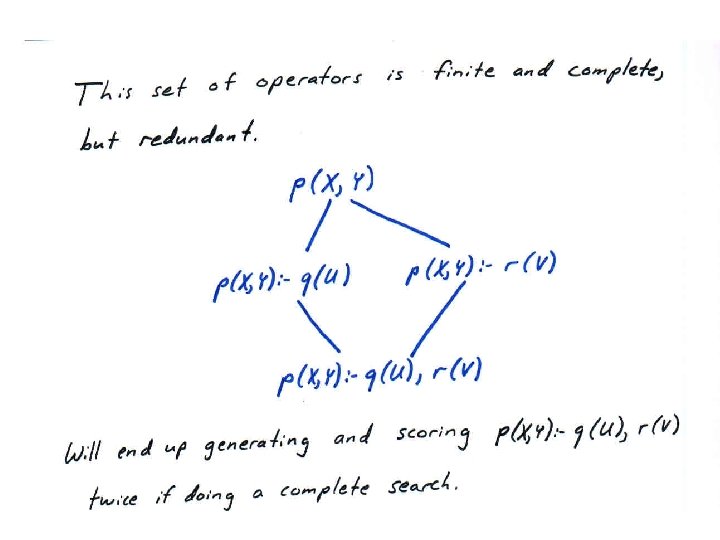 This set of operators is finite and complete,
but redundant.
p(X, Y)
p(X,Y):- q(U) p(X,Y):- r(V)
p(X,Y):- q(U), r(V)
Will end up generating and scoring p(X,Y):- q(U), r(V)
twice if doing a complete search.